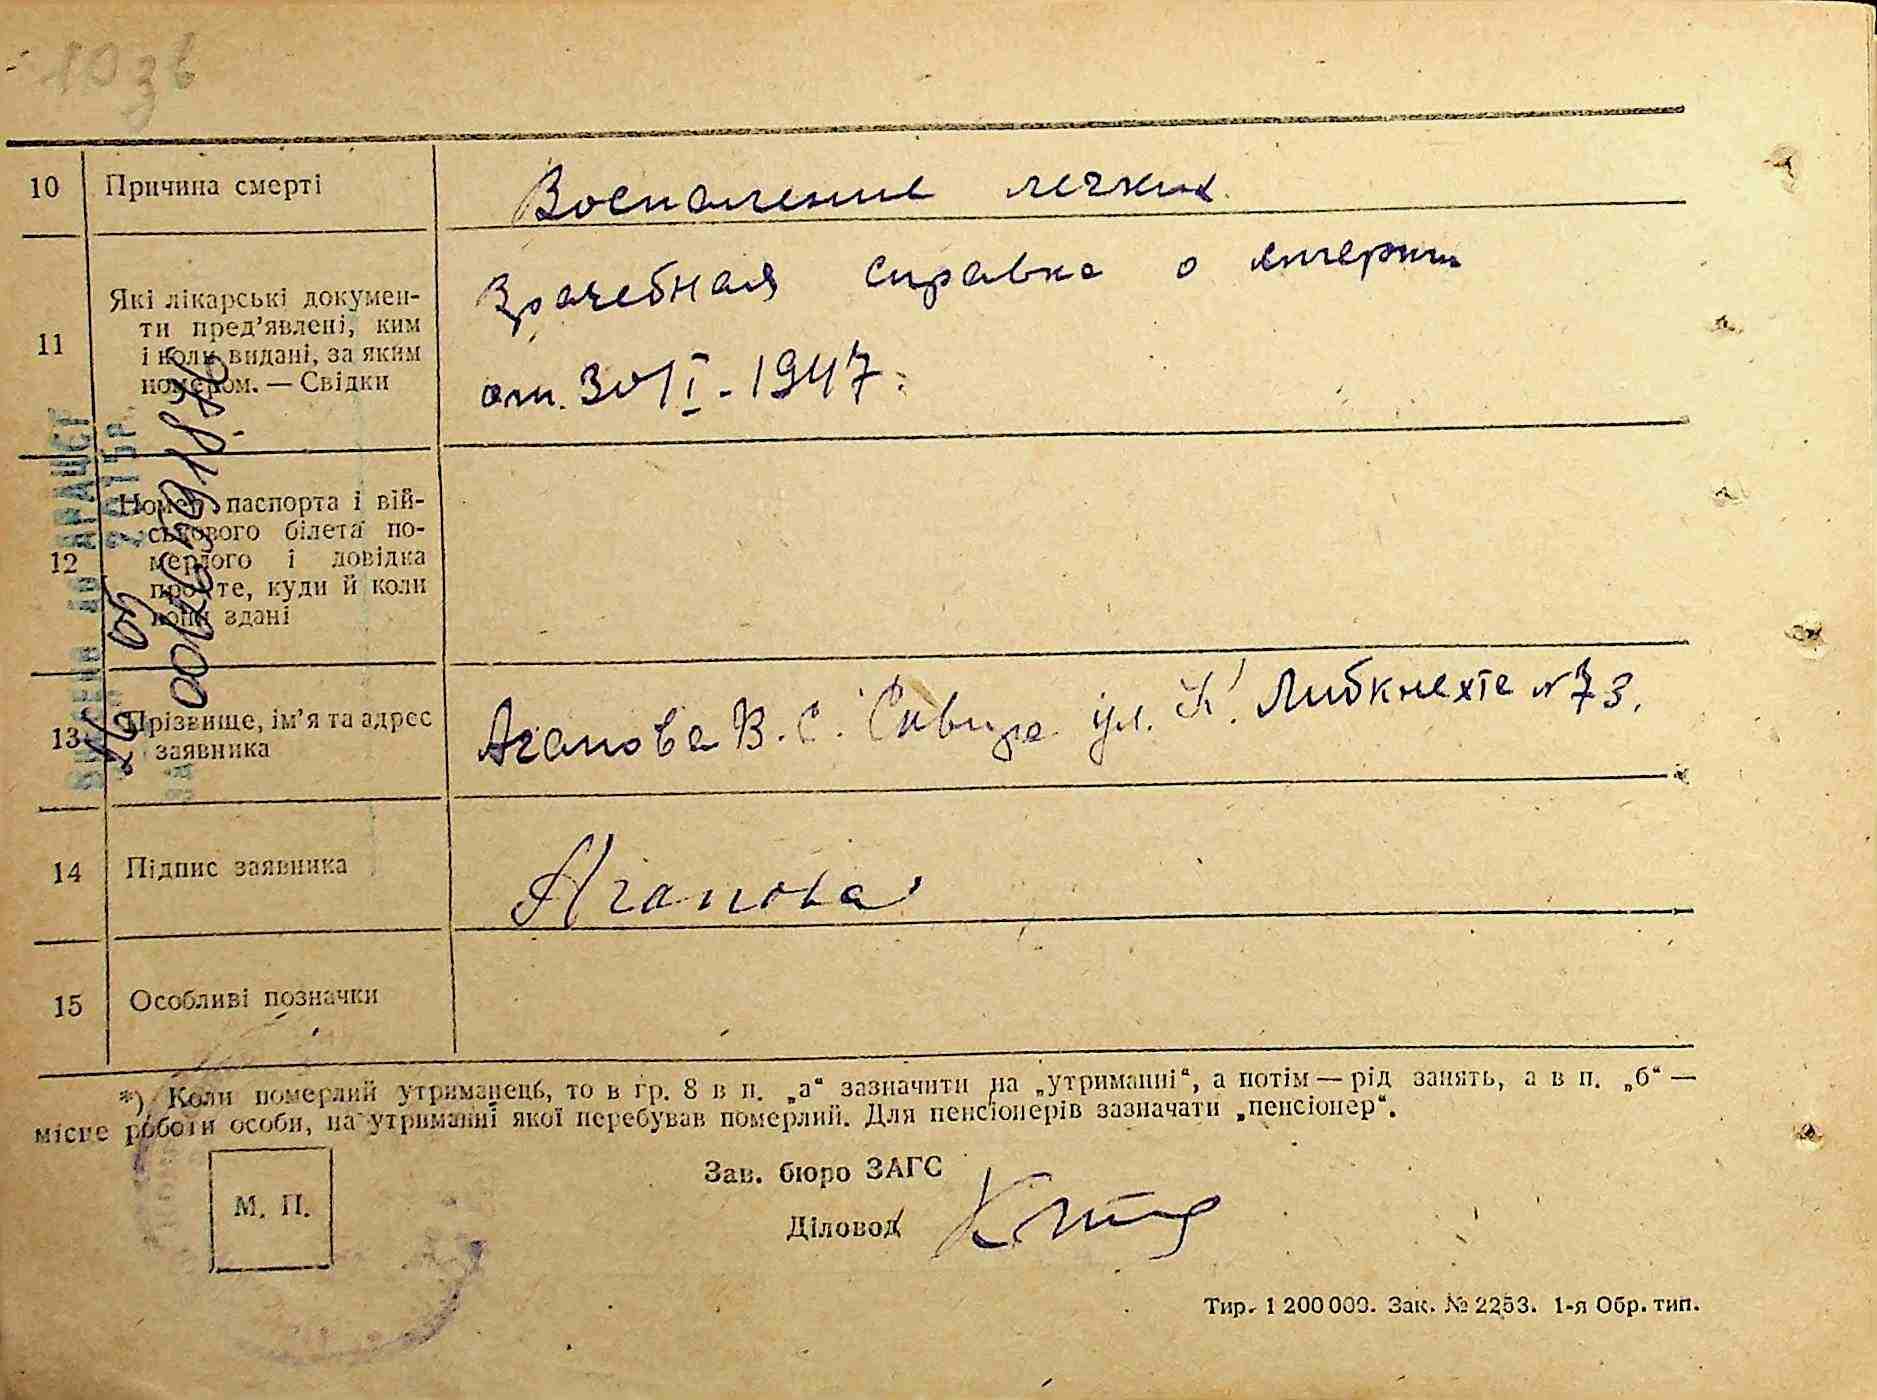 103в
10 Причина смерті
Воспаление легких
11 Які лікарські докумен-
ти пред’явлені, ким
і коли видані, за яким
номером. — Свідки
Врачебная справка о смерти
от 30/I - 1947.
12 Номер паспорта і вій-
ськового білета по-
мерлого і довідка
про те, куди й коли
вони здані
13 Прізвище, ім’я та адрес
заявника
Агапова В. С. Сквира ул. К. Либкнехте № 73.
14 Підпис заявника
Агапова
15 Особливі позначки
*) Коли померлий утриманець, то в гр. 8 в п. „а“ зазначити на „утриманні“, а потім — рід занять, а в п. „б“ —
місце роботи особи, на утриманні якої перебував померлий. Для пенсіонерів зазначати „пенсіонер“.
М. П.
Зав. бюро ЗАГС
Діловод
Тир. 1 200 000. Зак. № 2253. 1-я Обр. тип.